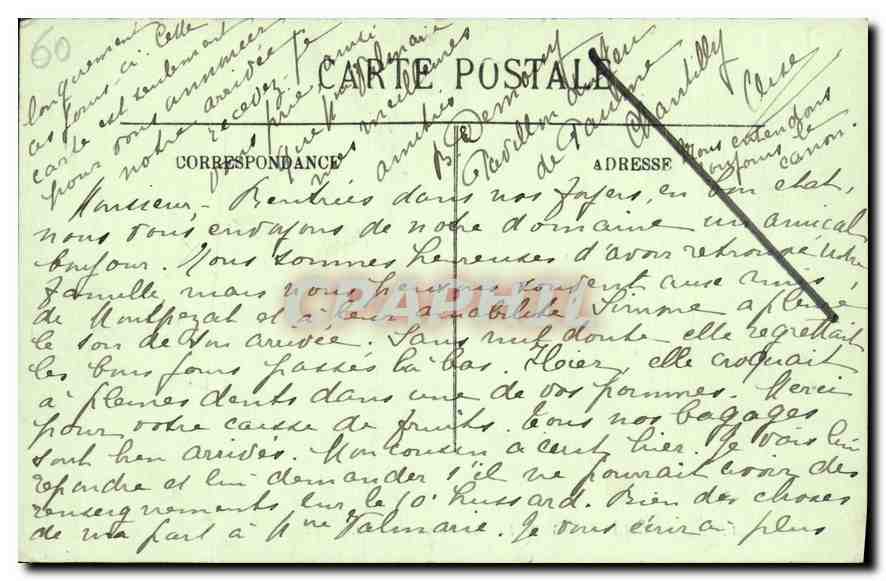 60
CARTE POSTALE
CORRESPONDANCE
ADRESSE
Monsieur, - Rentrées dans nos foyers, en bon état,
nous vous envoyons de notre domaine un amical
bonjour. Nous sommes heureuses d'avoir retrouvé notre
famille, mais nous pensons souvent aux amis
de Montpezat et à leur amabilité. Simone a pleuré
le soir de son arrivée. Sans nul doute elle regrettait
les bons jours passés là-bas. Hier, elle croquait
à pleines dents dans une de vos pommes. Merci
pour votre caisse de fruits. Tous nos bagages
sont bien arrivés. Mon cousin a écrit hier. Je vais lui
répondre et lui demander s'il ne pourrait avoir des
renseignements sur le 10e hussard. Bien des choses
de ma part à Mme Valmarie. Je vous écrirai plus
longuement
ces jours-ci. Cette
carte est seulement
pour vous annoncer
notre arrivée. Je
vous prie ainsi
que Mme Valmarie
recevez
nos meilleures
amitiés
B. Demouy
Pavillon de
de
Chantilly
Oise
Nous entendons
toujours le
canon.
CPAPHIL